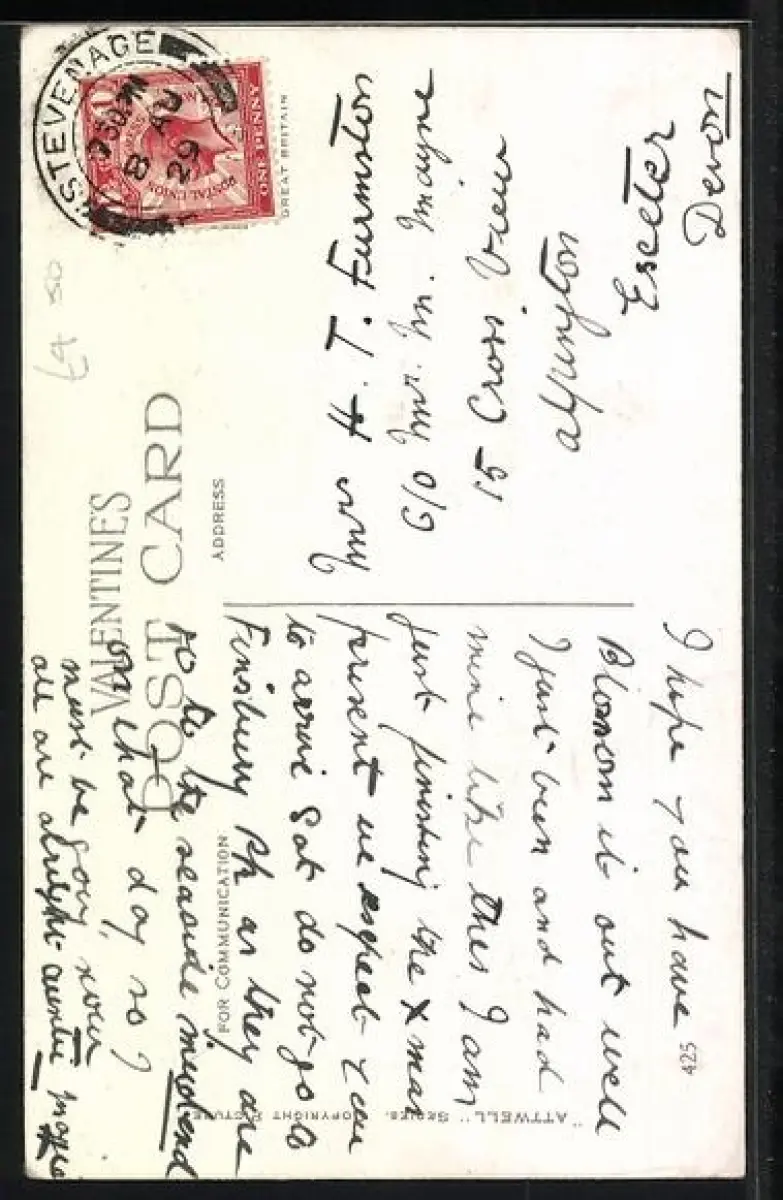 VALENTINE'S
POST CARD
ADDRESS
FOR COMMUNICATION
STEVENAGE
8 AU
29
POSTAL UNION
ONE PENNY
GREAT BRITAIN
£4 50
Mrs H. T. Furmston
C/o Mr. M. Mayne
15 Cross View
Alphington
Exeter
Devon
I hope you have
it out well
I just been and had
mine like this I am
just finishing the Xmas
present we expect you
to arrive Sat do not go to
Finsbury Pk as they are
to the seaside
on that day so I
must be going now
all are alright auntie
"ATTWELL" SERIES. COPYRIGHT PICTURE
425